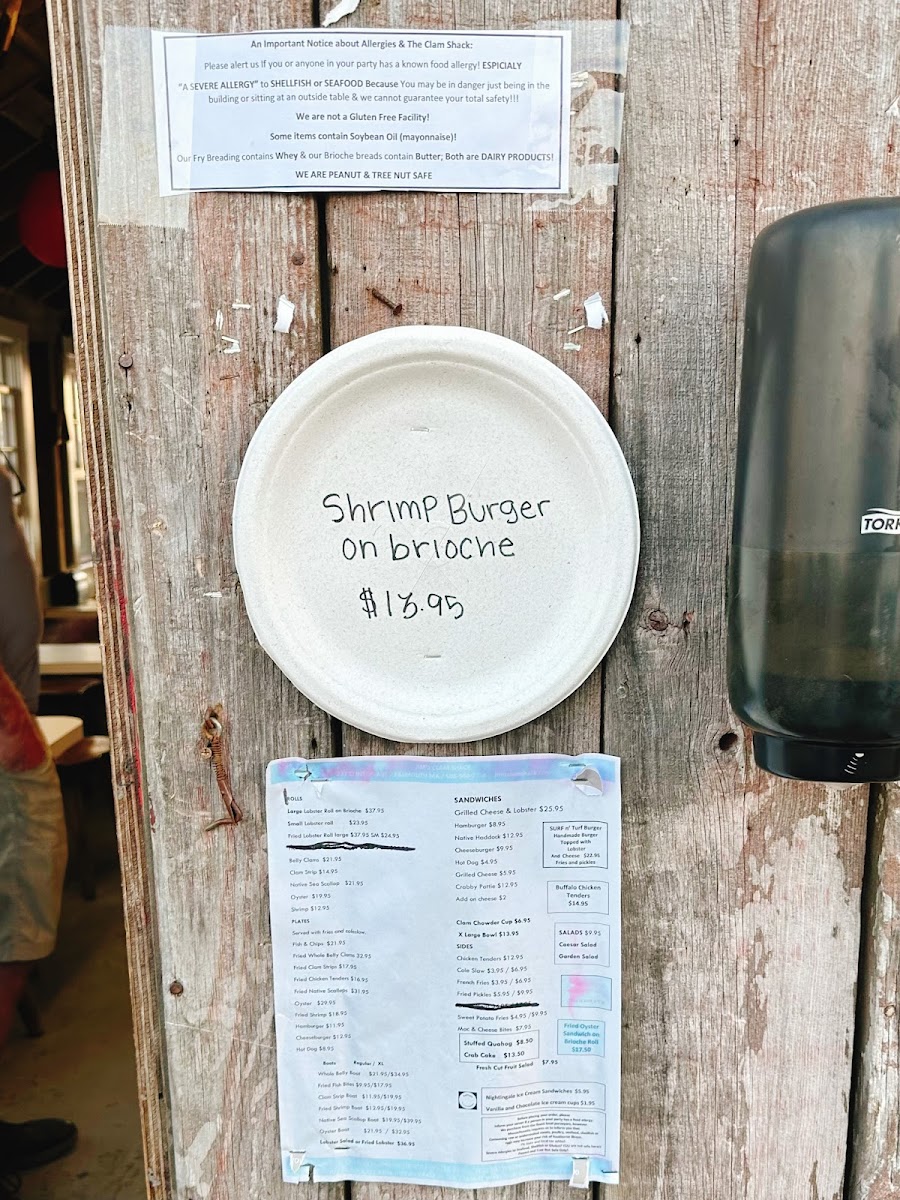 An Important Notice about Allergies & The Clam Shack:
Please alert us if you or anyone in your party has a known food allergy! ESPICIALY
"A SEVERE ALLERGY" to SHELLFISH or SEAFOOD Because You may be in danger just being in the
building or sitting at an outside table & we cannot guarantee your total safety!!!
We are not a Gluten Free Facility!
Some items contain Soybean Oil (mayonnaise)!
Our Fry Breading contains Whey & our Brioche breads contain Butter; Both are DAIRY PRODUCTS!
WE ARE PEANUT & TREE NUT SAFE
Shrimp Burger
on brioche
$13.95
TORK
ROLLS
Large Lobster Roll on Brioche $37.95
Small Lobster roll $23.95
Fried Lobster Roll large $37.95 SM $24.95
Belly Clams $21.95
Clam Strip $14.95
Native Sea Scallop $21.95
Oyster $19.95
Shrimp $12.95
PLATES
Served with fries and coleslaw.
Fish & Chips $21.95
Fried Whole Belly Clams 32.95
Fried Clam Strips $17.95
Fried Chicken Tenders $16.95
Fried Native Scallops $31.95
Oyster $29.95
Fried Shrimp $18.95
Hamburger $11.95
Cheeseburger $12.95
Hot Dog $8.95
Boats Regular / XL
Whole Belly Boat $21.95/$34.95
Fried Fish Bites $9.95/$17.95
Clam Strip Boat $11.95/$19.95
Fried Shrimp Boat $12.95/$19.95
Native Sea Scallop Boat $19.95/$39.95
Oyster Boat $21.95 / $32.95
Lobster Salad or Fried Lobster $36.95
SANDWICHES
Grilled Cheese & Lobster $25.95
Hamburger $8.95
Native Haddock $12.95
Cheeseburger $9.95
Hot Dog $4.95
Grilled Cheese $5.95
Crabby Pattie $12.95
Add on cheese $2
Clam Chowder Cup $6.95
X Large Bowl $13.95
SIDES
Chicken Tenders $12.95
Cole Slaw $3.95 / $6.95
French Fries $3.95 / $6.95
Fried Pickles $5.95 / $9.95
Sweet Potato Fries $4.95 /$9.95
Mac & Cheese Bites $7.95
Stuffed Quahog $8.50
Crab Cake $13.50
Fresh Cut Fruit Salad $7.95
SURF n' Turf Burger
Handmade Burger
Topped with
Lobster
And Cheese $22.95
Fries and pickles
Buffalo Chicken
Tenders
$14.95
SALADS $9.95
Caesar Salad
Garden Salad
Fried Oyster
Sandwich on
Brioche Roll
$17.50
Nightingale Ice Cream Sandwiches $5.95
Vanilla and Chocolate ice cream cups $1.95